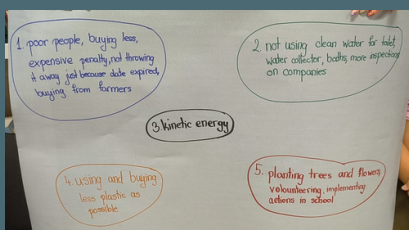 1. poor people, buying less,
expensive penalty, not throwing
it away just because date expired,
buying from farmers
2. not using clean water for toilet,
water collector, baths, more inspections
on companies
3. kinetic energy
4. using and buying
less plastic as
possible
5. planting trees and flowers,
volounteering, implementing
actions in school